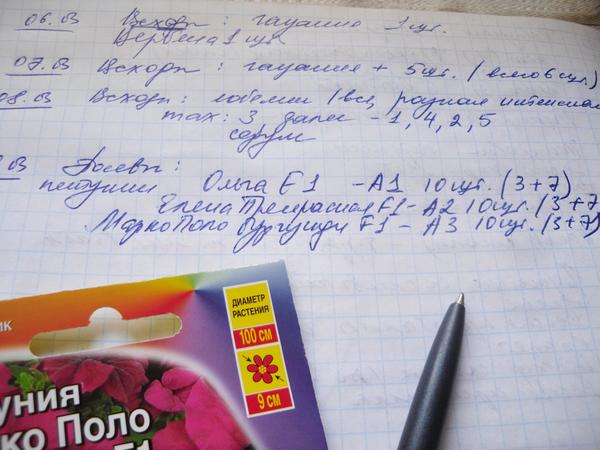 06.03 Всходы: гацания 1 шт.
Вербена 1 шт.
07.03 Всходы: гацания + 5 шт. (всего 6 шт.)
08.03 Всходы: лобелии (все, разная
max: 3, далее - 1, 4, 2, 5
седум
Посевы:
петунии Ольга F1 - А1 10 шт. (3+7)
Елена Прекрасная F1 - А2 10 шт. (3+7
Марко Поло Бургунди F1 - А3 10 шт. (3+7)
ДИАМЕТР
РАСТЕНИЯ
100 СМ
9 СМ
ик
уния
ко Поло
F1